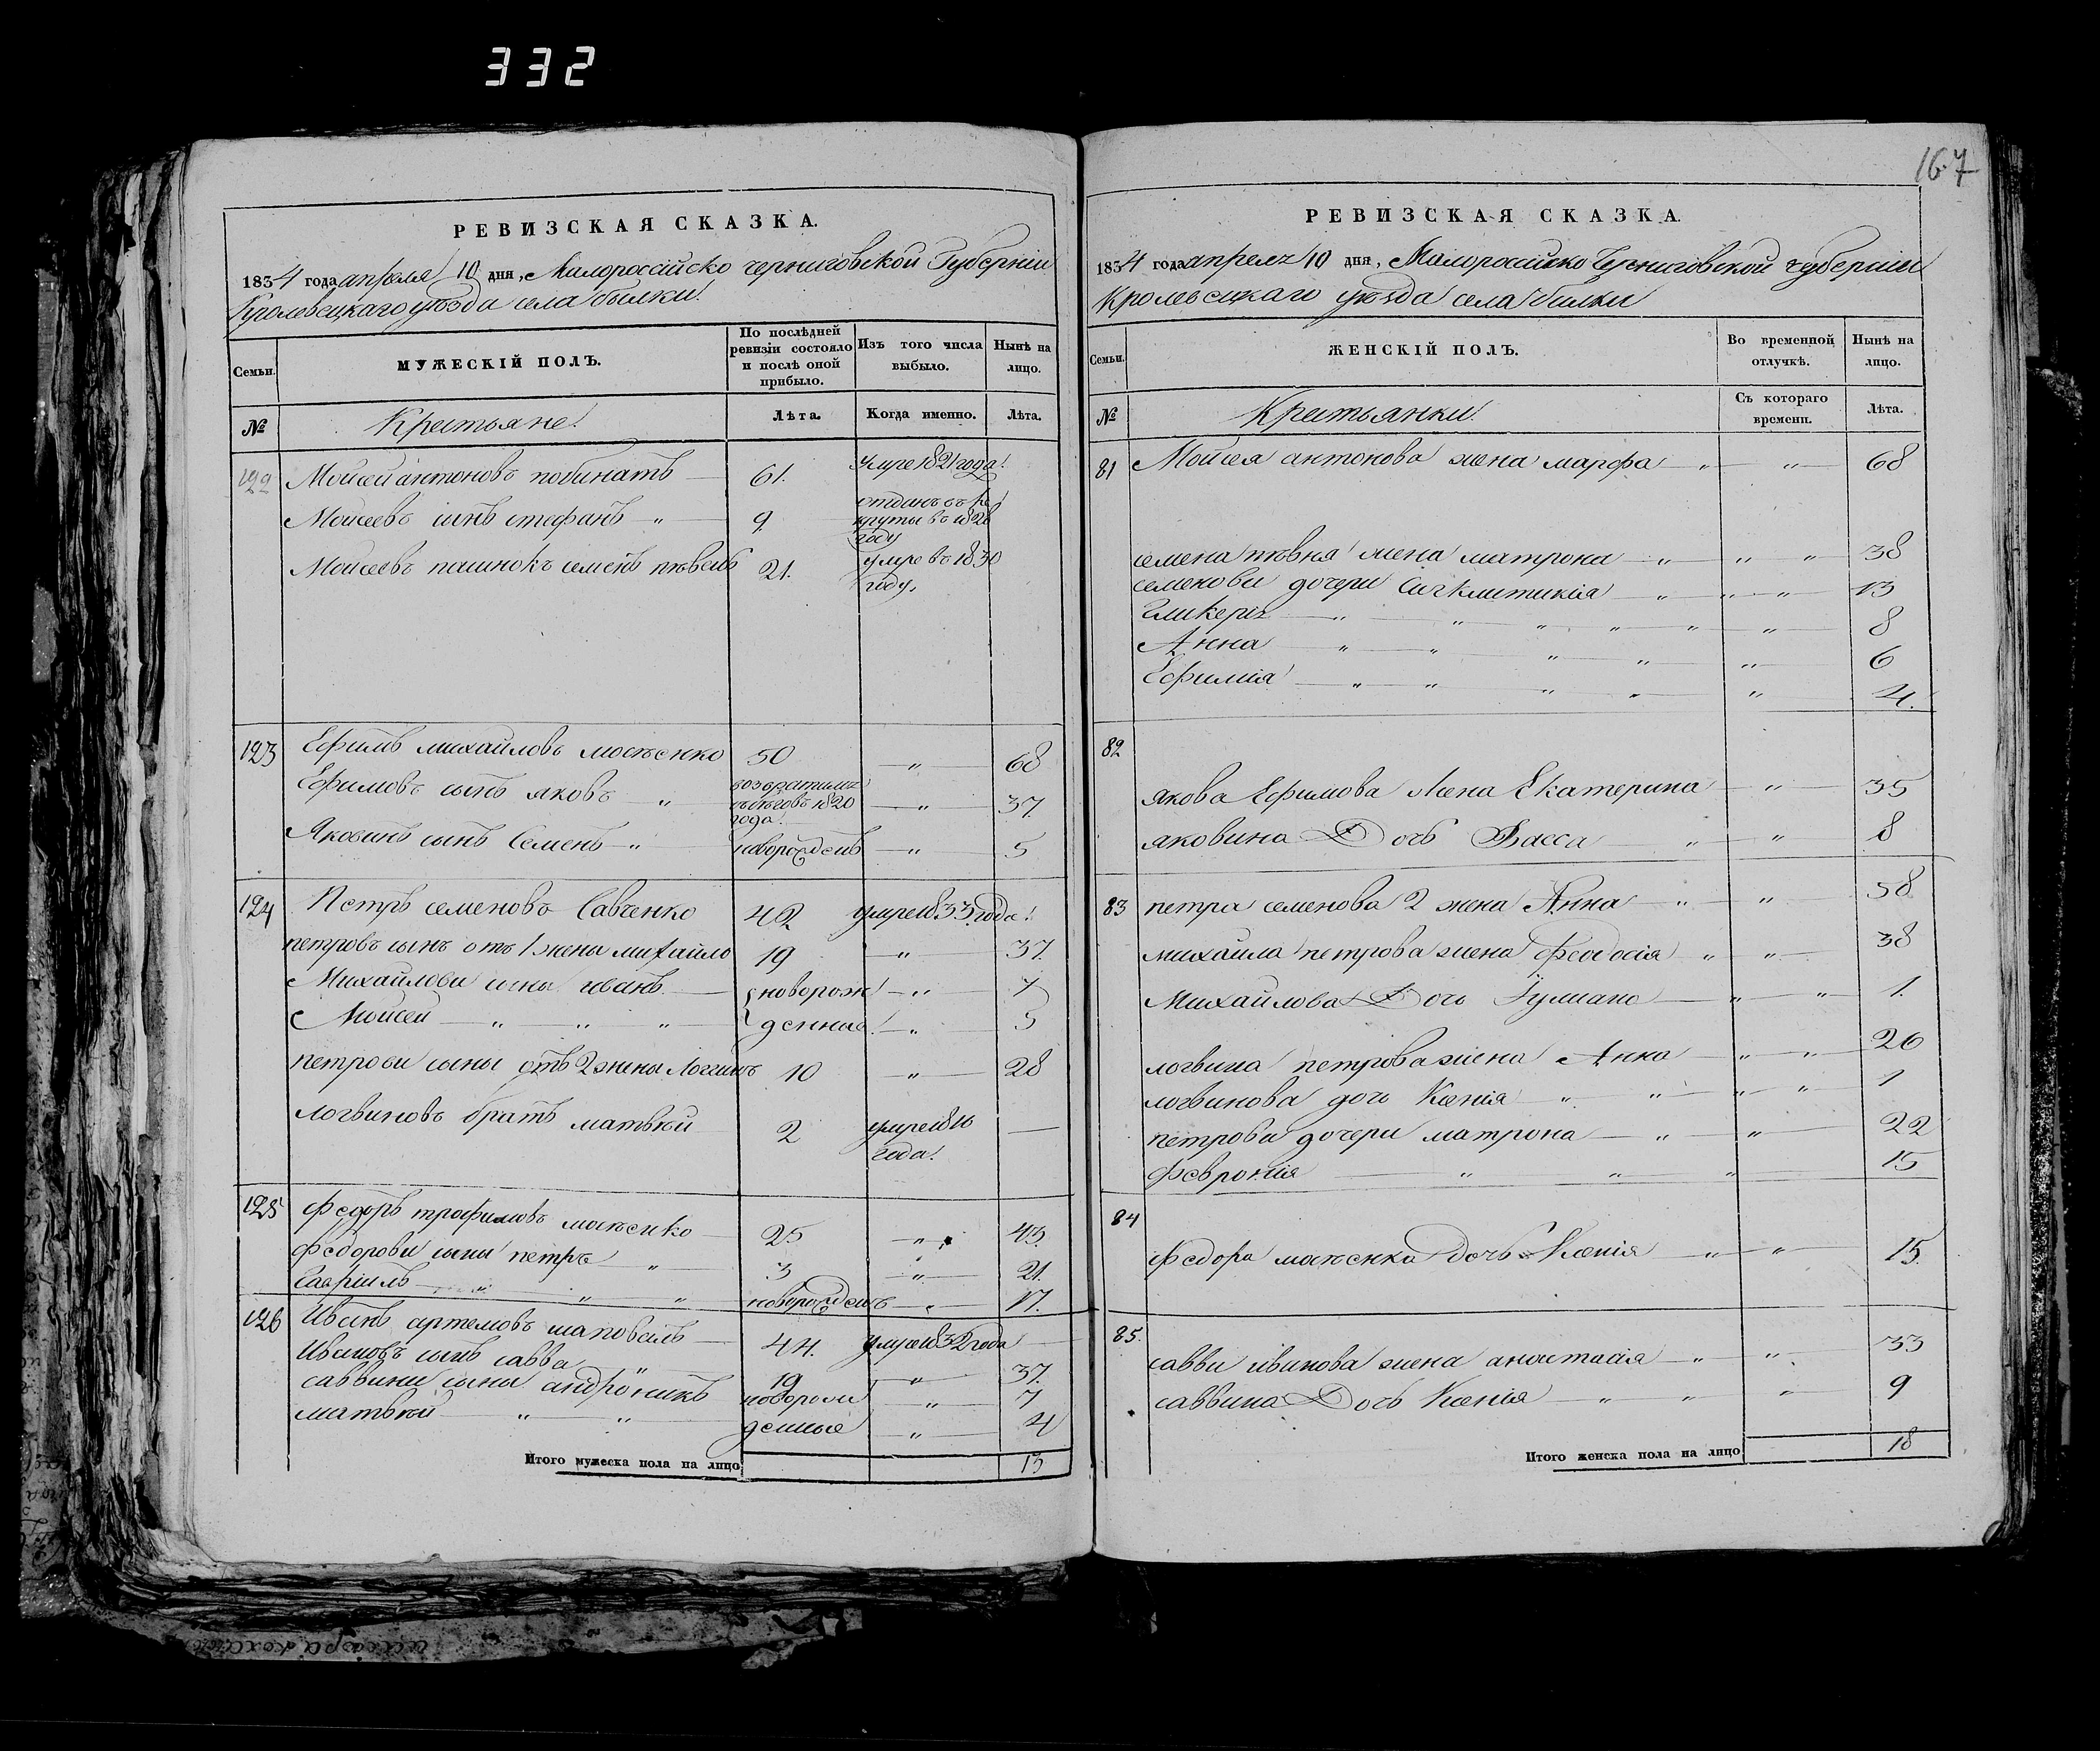 332
РЕВИЗСКАЯ СКАЗКА.
1834 года апреля 10 дня, Малороссійско черниговской Губерніи
Кролевецкаго уѣзда села билки
Семьи.
МУЖЕСКІЙ ПОЛЪ.
По послѣдней ревизіи состояло и послѣ оной прибыло.
Изъ того числа выбыло.
Нынѣ на лицо.
№
Крестьяне
Лѣта.
Когда именно.
Лѣта.
122 Мойсей антоновъ 61. умре 1821 года
Моисеевъ сынъ стефанъ " 9. отданъ въ рекруты въ 1828 году
Моисеевъ пасинокъ семенъ пѣвень 21. умре въ 1830 году,
123 Ефимъ михайловъ мосѣенко 50 " 68
Ефимовъ сынъ яковъ " возвратилъ 1820 года " 37
Яковинъ сынъ Семенъ " новорожденъ " 5
124 Петръ семеновъ Савченко 42 умре 1833 года
петровъ сынъ отъ 1 жены михайло 19 " 37.
Михайлови сыны иванъ новорож " 7
Мойсей " " " денные " 5
петрови сыны отъ 2 жены Логгинъ 10 " 28
логвиновъ братъ матвѣй 2 умре 18
года
125 Федоръ трофимовъ мосѣенко 25 " 43.
федорови сыны петръ " 3 " 21.
Гавріилъ " " " новорожденъ " 17.
126 Иванъ артемовъ шаповалъ 44. умре 1832 года
Ивановъ сынъ савва " 19 " 37.
саввини сыны андроникъ новорож " 7
матвѣй " " денные " 4
Итого мужеска пола на лицо 13
167
РЕВИЗСКАЯ СКАЗКА.
1834 года апреля 10 дня, Малороссійско Черниговской губерніи
Кролевецкаго уѣзда села билки
Семьи.
ЖЕНСКІЙ ПОЛЪ.
Во временной отлучкѣ.
Нынѣ на лицо.
№
Крестьянки
Съ котораго времени.
Лѣта.
81 Мойсея антонова жена марфа " " 68
семена пѣвня жена матрона " " " 38
семенови дочери Сигклитикія " " " 13
Гликерія " " " " " " 8
Анна " " " " " 6
Ефимія " " " " " 4.
82
якова Ефимова жена Екатерина " 35
яковина Дочь Васса " " 8
83 петра семенова 2 жена Анна " " 58
михайла петрова жена феодосія " " 38
Михайлова Дочь Іулиана " " 1.
логвина петрова жена Анна " " 26
логвинова дочь Ксенія " " " " 1
петрови дочери матрона " " 22
феврония " " " 15
84
федора мосѣенка дочь Ксенія " " 15.
85.
савви иванова жена анастасія " " 33
саввина Дочь Ксенія " " " 9
Итого женска пола на лицо 18